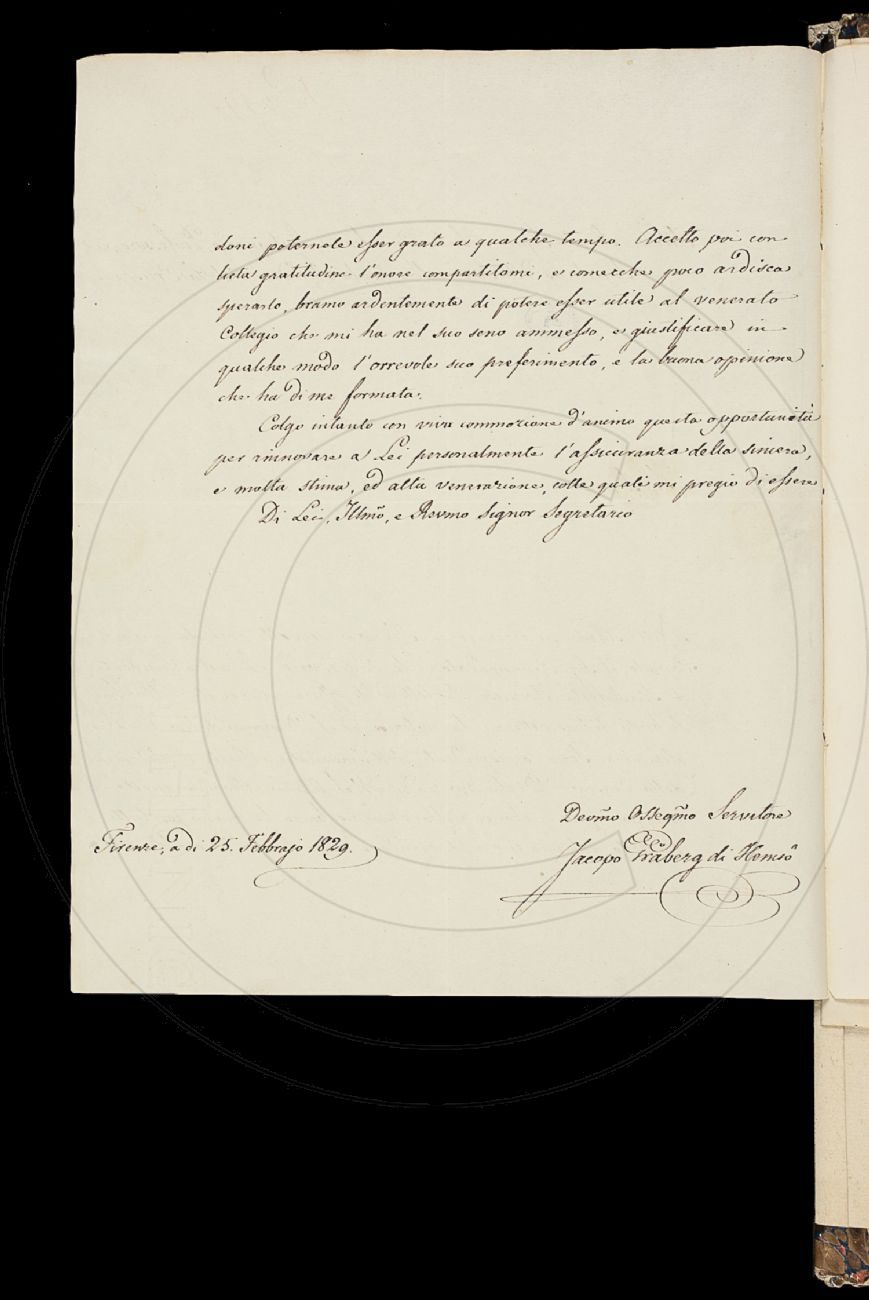 doni poternele esser grato a qualche tempo. Accetto poi con
lieta gratitudine l'onore compartitomi, e comecche poco ardisca
sperarlo, bramo ardentemente di potere esser utile al venerato
Collegio che mi ha nel suo seno ammesso, e giustificare in
qualche modo l'orrevole suo preferimento, e la buona opinione
che ha di me formata.
Colgo intanto con viva commozione d'animo questa opportunità
per rinnovare a Lei personalmente l'assicuranza della sincera,
e molta stima, ed alta venerazione, colle quali mi pregio di essere
Di Lei, Illmo, e Revmo Signor Segretario
Devmo Ossegmo Servitore
Firenze, a di 25. Febbrajo 1829.
Jacopo Graberg di Hemsö